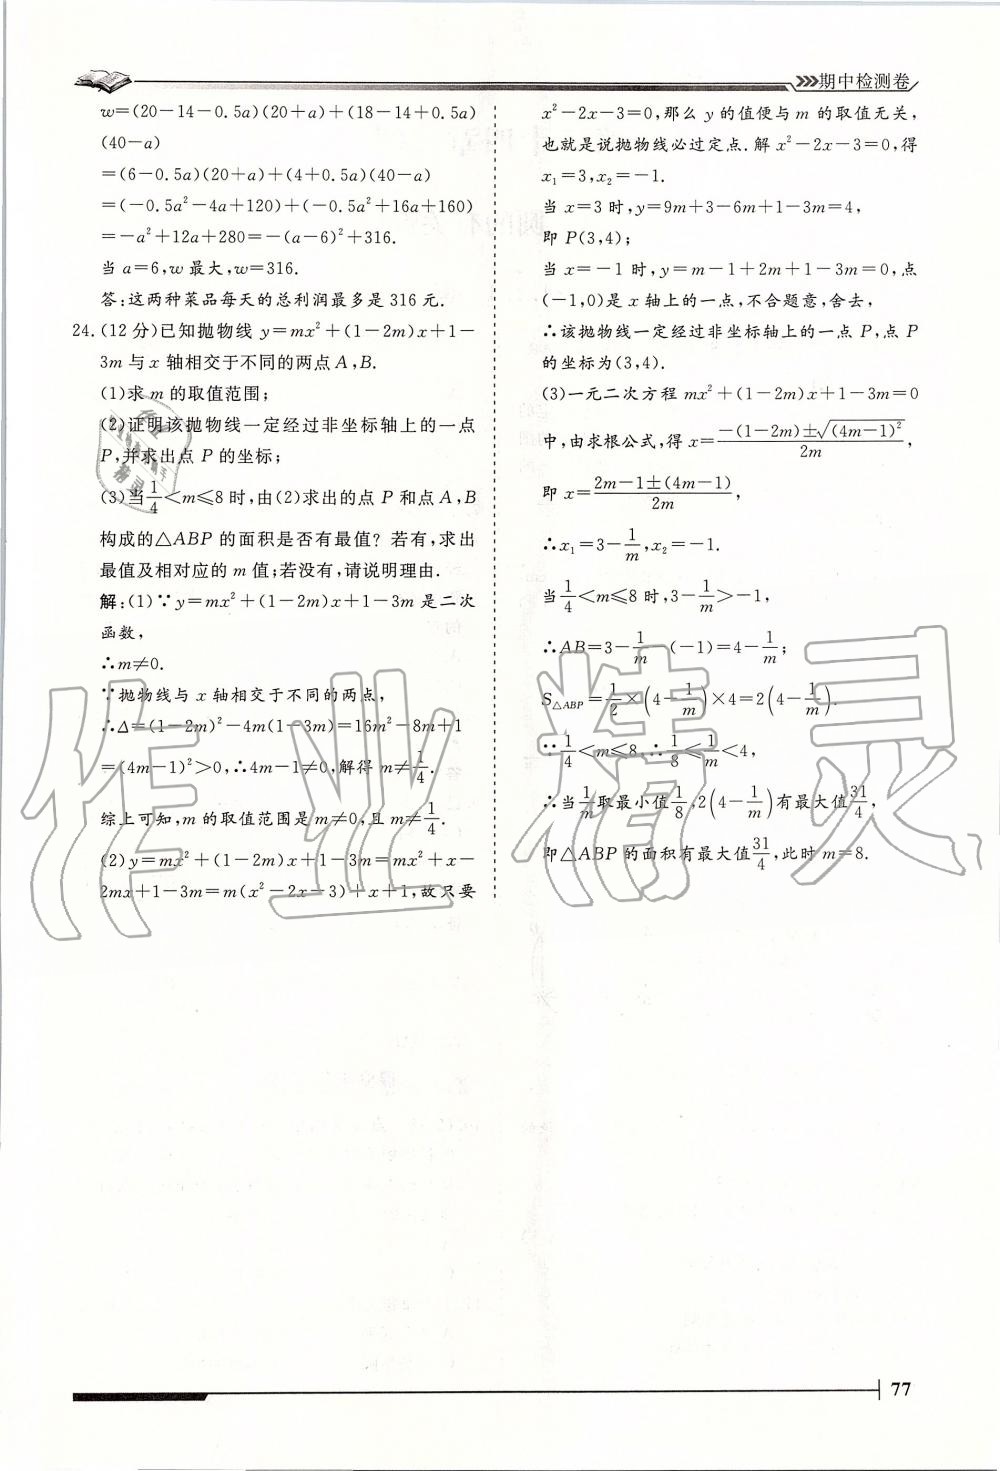 期中检测卷
w=(20-14-0.5a)(20+a)+(18-14+0.5a)
(40-a)
=(6-0.5a)(20+a)+(4+0.5a)(40-a)
=(-0.5a²-4a+120)+(-0.5a²+16a+160)
=-a²+12a+280=-(a-6)²+316.
当 a=6,w 最大,w=316.
答:这两种菜品每天的总利润最多是 316 元.
24.(12 分)已知抛物线 y=mx²+(1-2m)x+1-
3m 与 x 轴相交于不同的两点 A,B.
(1)求 m 的取值范围;
(2)证明该抛物线一定经过非坐标轴上的一点
P,并求出点 P 的坐标;
(3)当1/4<m≤8 时,由(2)求出的点 P 和点 A,B
构成的△ABP 的面积是否有最值? 若有,求出
最值及相对应的 m 值;若没有,请说明理由.
解:(1)∵y=mx²+(1-2m)x+1-3m 是二次
函数,
∴m≠0.
∵抛物线与 x 轴相交于不同的两点,
∴Δ=(1-2m)²-4m(1-3m)=16m²-8m+1
=(4m-1)²>0,∴4m-1≠0,解得 m≠1/4.
综上可知,m 的取值范围是 m≠0,且 m≠1/4.
(2)y=mx²+(1-2m)x+1-3m=mx²+x-
2mx+1-3m=m(x²-2x-3)+x+1,故只要
x²-2x-3=0,那么 y 的值便与 m 的取值无关,
也就是说抛物线必过定点.解 x²-2x-3=0,得
x₁=3,x₂=-1.
当 x=3 时,y=9m+3-6m+1-3m=4,
即 P(3,4);
当 x=-1 时,y=m-1+2m+1-3m=0,点
(-1,0)是 x 轴上的一点,不合题意,舍去,
∴该抛物线一定经过非坐标轴上的一点 P,点 P
的坐标为(3,4).
(3)一元二次方程 mx²+(1-2m)x+1-3m=0
中,由求根公式,得 x=(-(1-2m)±√(4m-1)²)/2m,
即 x=(2m-1±(4m-1))/2m,
∴x₁=3-1/m,x₂=-1.
当1/4<m≤8 时,3-1/m>-1,
∴AB=3-1/m-(-1)=4-1/m;
S△ABP=1/2×(4-1/m)×4=2(4-1/m).
∵1/4<m≤8,∴1/8≤1/m<4,
∴当1/m取最小值1/8,2(4-1/m)有最大值31/4,
即△ABP 的面积有最大值31/4,此时 m=8.
77
作业精灵